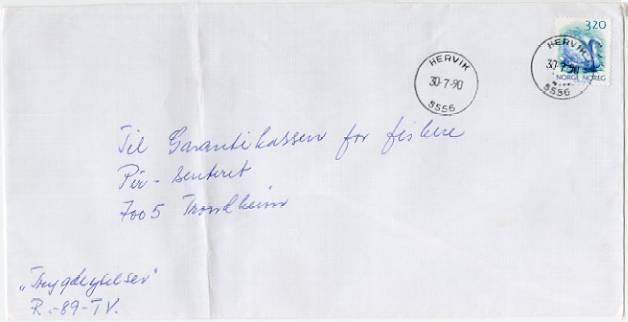 320
HERVIK
30-7-90
5556
HERVIK
30-7-90
NORGE NOREG
5556
Til Garantikassen for fiskere
Pir-Senteret
7005 Trondheim
„Trygdeytelser"
R.-89-TV.